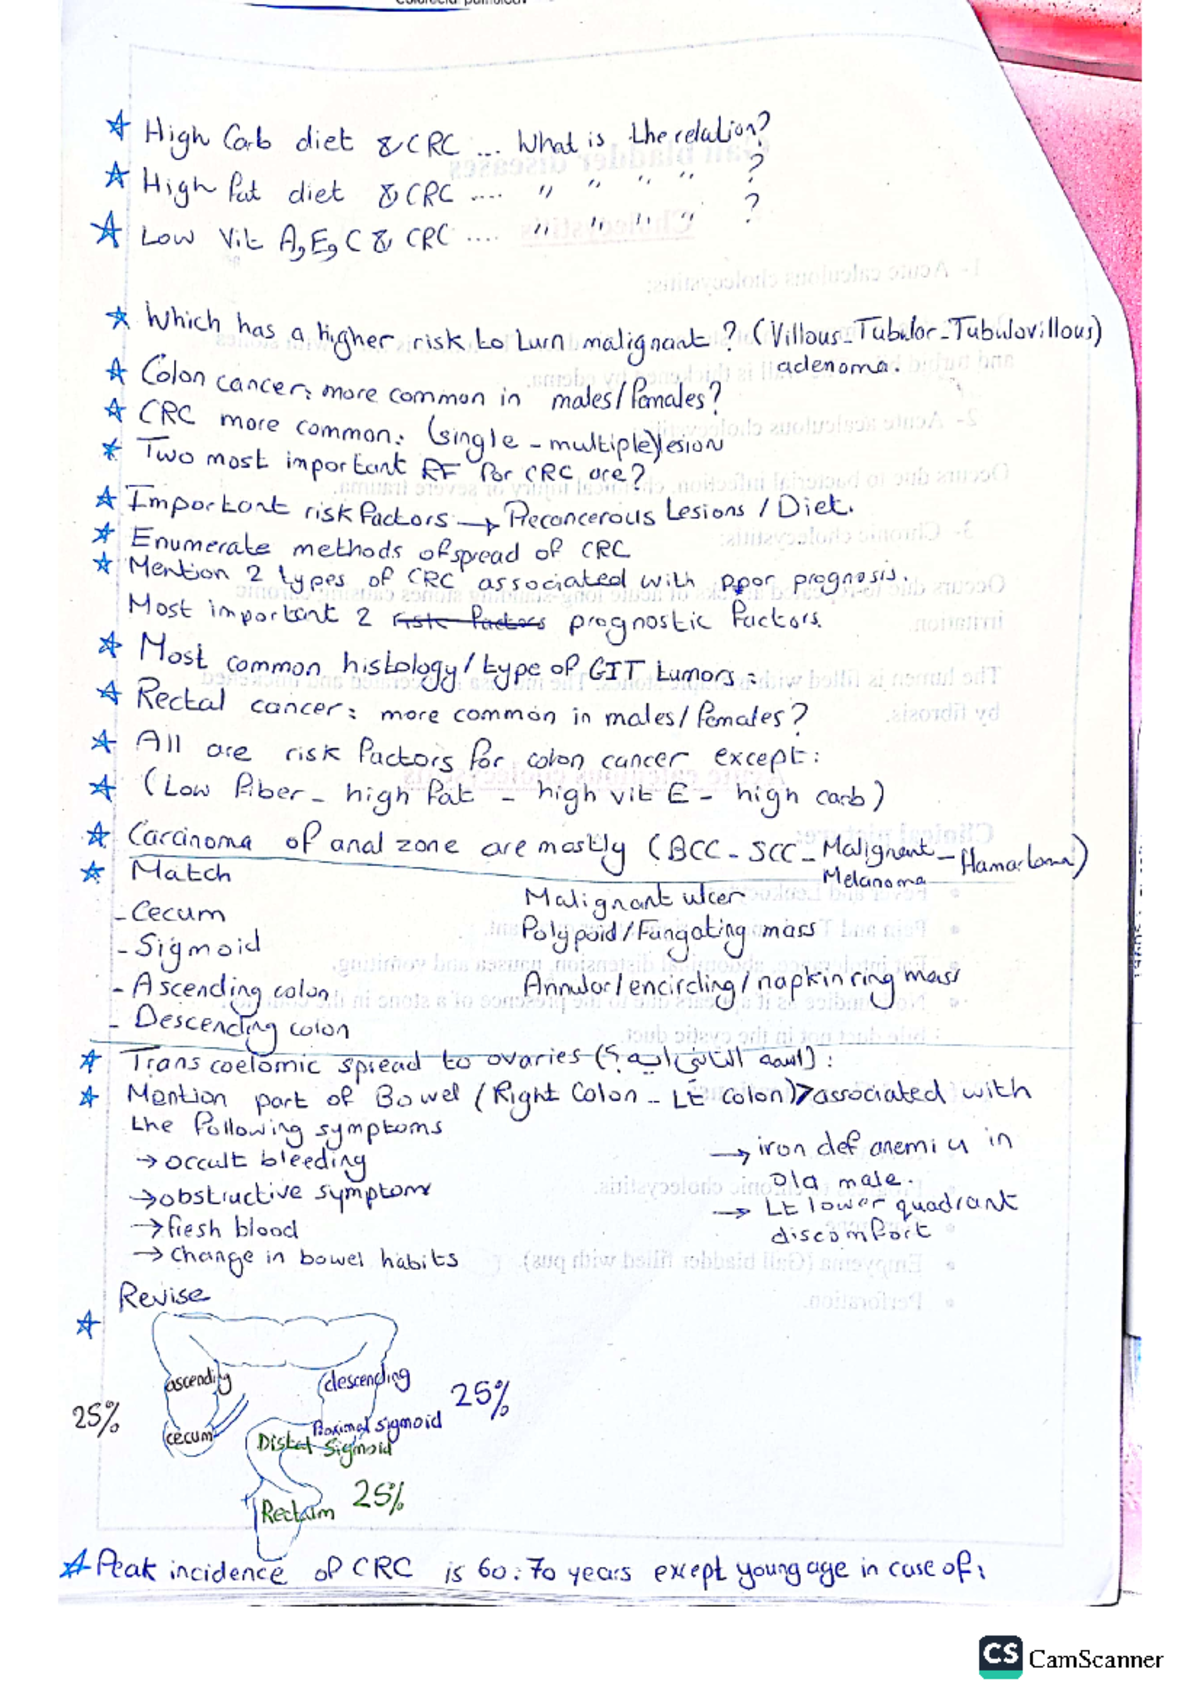 ☆ High Carb diet & CRC ... What is the relation?
☆ High Fat diet & CRC .... " " " " ?
☆ Low Vit A, E, C & CRC .... " " " " ?
☆ Which has a higher risk to turn malignant? (Villous - Tubular - Tubulovillous)
adenoma.
☆ Colon cancer: more common in males/Females?
☆ CRC more common: (single - multiple) lesion
☆ Two most important RF for CRC are?
☆ Important risk Factors → Precancerous Lesions / Diet.
☆ Enumerate methods of spread of CRC
☆ Mention 2 types of CRC associated with poor prognosis.
Most important 2 risk Factors prognostic Factors.
☆ Most common histology/type of GIT tumors:
☆ Rectal cancer: more common in males/Females?
☆ All are risk Factors for colon cancer except:
☆ (Low Fiber - high Fat - high vit E - high carb)
☆ Carcinoma of anal zone are mostly (BCC - SCC - Malignant Melanoma - Hamartoma)
☆ Match
- Cecum Malignant ulcer
- Sigmoid Polypoid/Fungating mass
- Ascending colon Annular/encircling/napkin ring mass
- Descending colon
☆ Trans coelomic spread to ovaries (اسمه التاني ايه؟):
☆ Mention part of Bowel (Right Colon - Lt colon) > associated with
the Following symptoms
→ occult bleeding → iron def anemia in
old male.
→ obstructive symptoms → Lt lower quadrant
→ fresh blood discomfort
→ change in bowel habits
Revise
☆
ascending descending 25%
25% cecum Proximal sigmoid
Distal Sigmoid
Rectum 25%
☆ Peak incidence of CRC is 60:70 years except young age in case of:
CS CamScanner